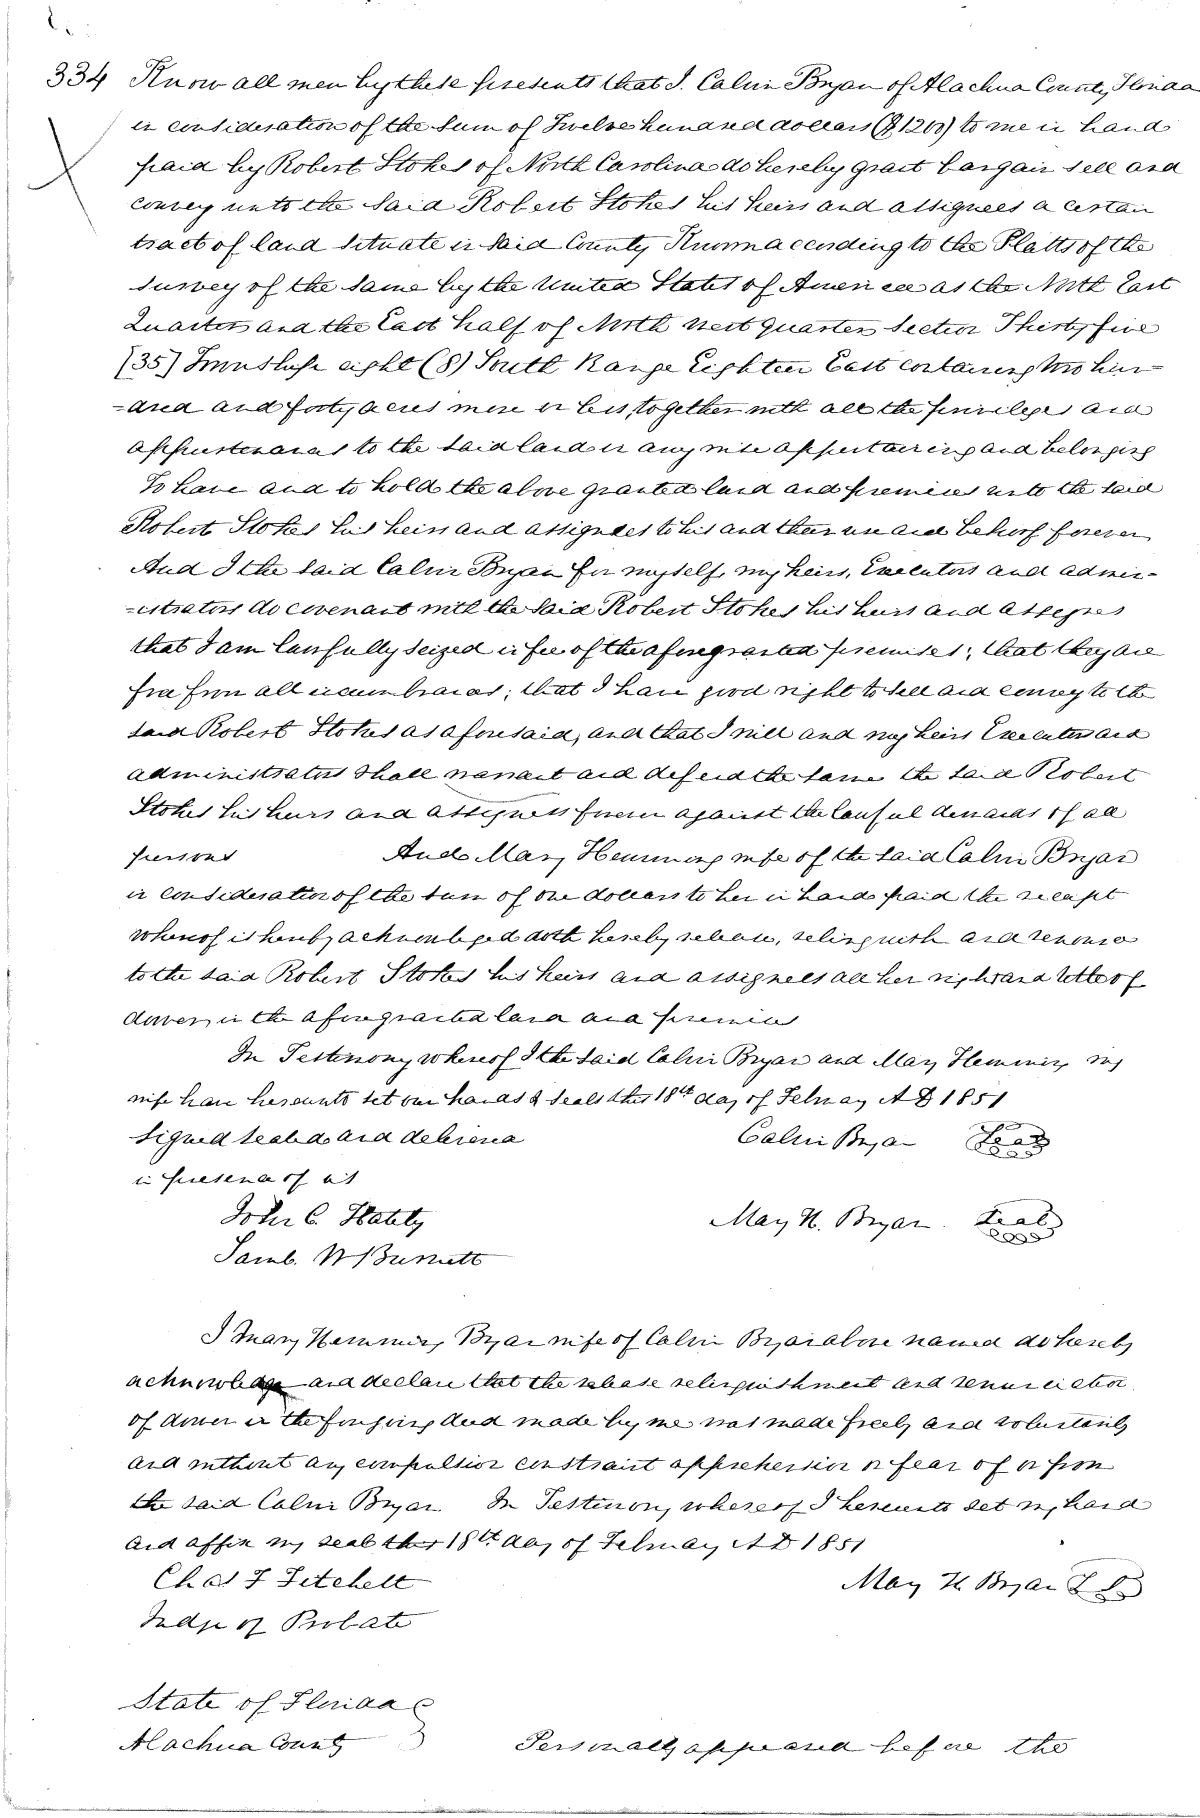 334 Know all men by these presents that I. Calvin Bryan of Alachua County, Florida
in consideration of the Sum of Twelve hundred dollars ($1200) to me in hand
paid by Robert Stokes of North Carolina do hereby grant bargain sell and
convey unto the Said Robert Stokes his heirs and assignees a certain
tract of land Situate in Said County Known according to the Platts of the
Survey of the Same by the United States of America as the North East
Quarter and the East half of North West quarter Section Thirty five
(35) Township eight (8) South Range Eighteen East containing two hun-
-dred and forty acres more or less, together with all the privileges and
appurtenances to the said land in any wise appertaining and belonging
To have and to hold the above granted land and premises unto the said
Robert Stokes his heirs and assignees to his and their use and behoof forever
And I the said Calvin Bryan for myself, my heirs, Executors and admin-
-istrators do covenant with the said Robert Stokes his heirs and assigns
that I am lawfully seized in fee of the aforegranted premises; that they are
free from all incumbrances; that I have good right to sell and convey to the
said Robert Stokes as aforesaid, and that I will and my heirs Executors and
administrators shall warrant and defend the same the said Robert
Stokes his heirs and assignees forever against the lawful demands of all
persons And Mary Hemming wife of the said Calvin Bryan
in consideration of the sum of one dollars to her in hand paid the receipt
whereof is hereby acknowledged doth hereby release, relinquish and renounce
to the said Robert Stokes his heirs and assignees all her right and title of
dower, in the aforegranted land and premises
In Testimony whereof I the said Calvin Bryan and Mary Hemming my
wife have hereunto set our hands & seals this 18th day of February A D 1851
Signed sealed and delivered
Calvin Bryan Seal
in presence of us
John C. Stately
Mary H. Bryan. Seal
Samb. W Burnett
I Mary Hemming Bryan wife of Calvin Bryan above named do hereby
acknowledge and declare that the release relinquishment and renunciation
of dower in the foregoing deed made by me was made freely and voluntarily
and without any compulsion constraint apprehension or fear of or from
the said Calvin Bryan In Testimony whereof I hereunto set my hand
and affix my seal this 18th day of February A D 1851
Chas F Fitchett
Mary H Bryan L S
Judge of Probate
State of Florida
Alachua County Personally appeared before the